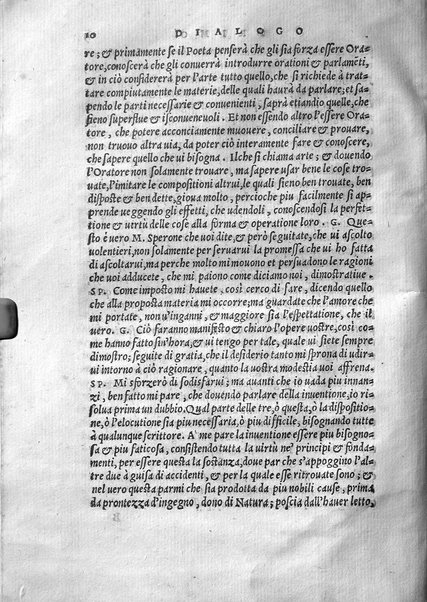 20 DIALOGO
re; & primamente se il Poeta penserà che gli sia forza essere Ora-
tore, conoscerà che gli conuerrà introdurre orationi & parlamēti,
& in ciò considererà per l'arte tutto quello, che si richiede à trat-
tare compiutamente le materie, delle quali haurà da parlare; et sa-
pendo le parti necessarie & conuenienti, saprà etiandio quelle, che
sieno superflue et isconueuoli. Et non essendo altro l'essere Ora-
tore, che potere acconciamente muouere, conciliare & prouare,
non truouo altra uia, da poter ciò interamente fare & conoscere,
che sapere quello che ui bisogna. Ilche si chiama arte; & douendo
l'Oratore non solamente trouare, ma sapere usar bene le cose tro-
uate, l'imitare le compositioni altrui, le quali sieno ben trouate, ben
disposte & ben dette, gioua molto, percioche piu facilmente si ap-
prende ueggendo gli effetti, che udendoli, conoscendosi la perfet-
tione & uirtù delle cose alla forma & operatione loro. G. Que-
sto è uero M. Sperone che uoi dite, & però seguitate, che ui ascolto
uolentieri, non solamente per seruarui la promessa che ui ho fatta
di ascoltarui, ma perche molto mi mouono et persuadono le ragioni
che uoi adducete, che mi paiono come diciamo noi, dimostratiue.
SP. Come imposto mi hauete, così cerco di fare, dicendo quello
che alla proposta materia mi occorre; ma guardate che l'amore che
mi portate, non u'inganni, & maggiore sia l'espettatione, che il
uero. G. Ciò faranno manifesto & chiaro l'opere uostre, così co-
me hanno fatto sin'hora, & ui tengo per tale, quale ui siete sempre
dimostro; seguite di gratia, che il desiderio tanto mi sprona di udir-
ui intorno à ciò ragionare, quanto la uostra modestia uoi affrena.
SP. Mi sforzerò di sodisfarui; ma auanti che io uada piu innan-
zi, ben fatto mi pare, che douendo parlare della inuentione, io ri-
solua prima un dubbio. Qual parte delle tre, ò questa, ò la dispositio-
ne, ò l'elocutione sia piu necessaria, ò piu difficile, bisognando tutte
à qualunque scrittore. A' me pare la inuentione essere piu bisogno-
sa & piu faticosa, consistendo tutta la uirtù ne' principi & fonda-
menti, per essere questa la sostanza, doue par che s'appoggino l'al-
tre due à guisa di accidenti, & per la quale esse ritrouate sono; &
nel uero questa parmi che sia prodotta da piu nobili cause, prima
da prontezza d'ingegno, dono di Natura; poscia dall'hauer letto,